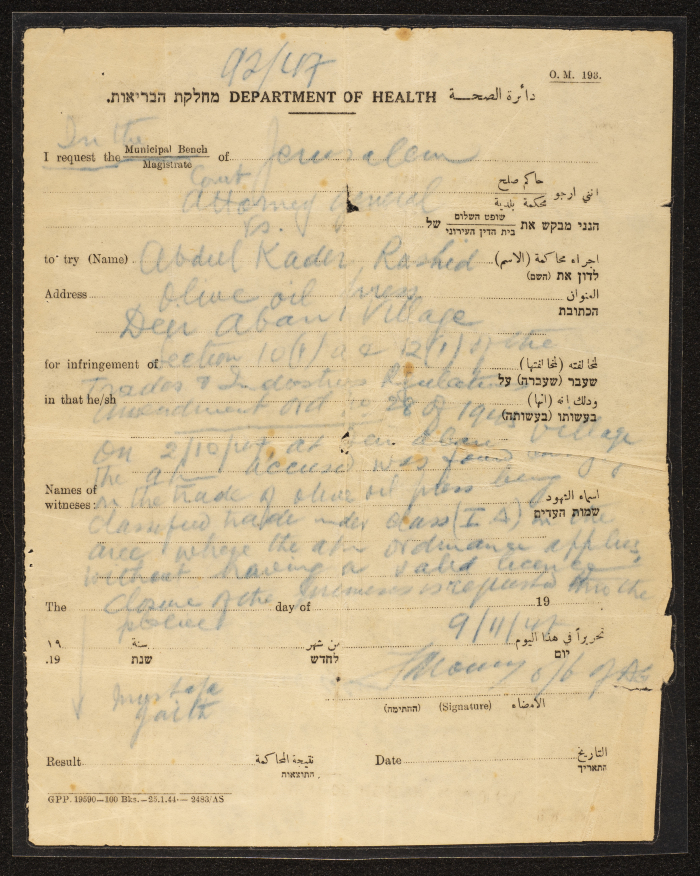 92/47
O. M. 193.
מחלקת הבריאות. DEPARTMENT OF HEALTH دائرة الصحة
In the
I request the Municipal Bench / Magistrate of Jerusalem
Court
انني ارجو حاكم صلح / محكمة بلدية
Attorney General
הנני מבקש את שופט השלום / בית הדין העירוני של
Vs.
to try (Name) Abdul Kader Rashid اجراء محاكمة (الاسم)
לדון את (השם)
Address Olive oil Press العنوان
הכתובת
Deir Aban Village
for infringement of Section 10(1) & 12(1) of the لمخالفته (لمخالفتها)
שעבר (שעברה) על
Trades & Industries Regulation
in that he/sh وذلك انه (انها)
בעשותו (בעשותה)
Amendment Ord. 28 of
On 2/10/47 at Deir Aban Village
the accused was found
Names of
witnesses:
اسماء الشهود
שמות העדים
on the trade of olive oil press being
classified trade under class (I A) in the
area where the ordinance applies
without having a valid licence
Closure of the premises is requested
The day of 19
police
9/11/47
تحريراً في هذا اليوم من شهر سنة ١٩
יום לחדש שנת 19.
of AG
الامضاء (Signature) (החתימה)
Mustafa
Result نتيجة المحاكمة
התוצאות.
Date التاريخ
התאריך
GPP. 19590—100 Bks.—25.1.44— 2483/AS